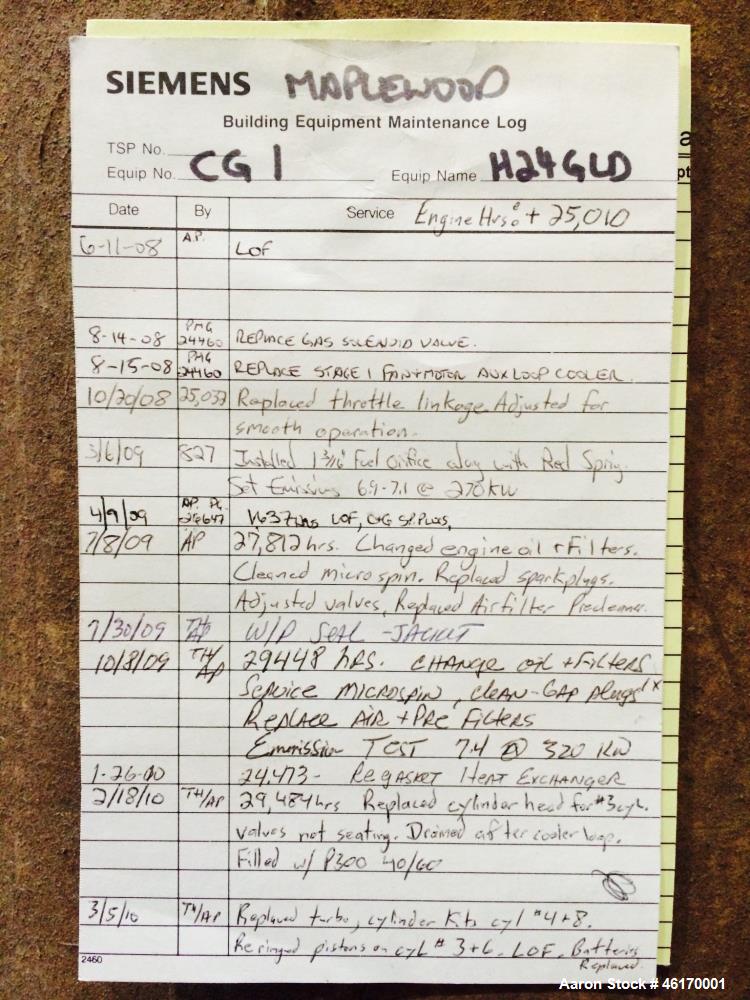 SIEMENS MAPLEWOOD
Building Equipment Maintenance Log
TSP No.
Equip No. CG 1 Equip Name H24GLD
Date By Service Engine Hrs: + 25,010
6-11-08 A.P. LOF
8-14-08 PMG 24460 REPLACE GAS SOLENOID VALVE.
8-15-08 PMG 24460 REPLACE STAGE 1 FAN+MOTOR AUX LOOP COOLER.
10/20/08 25,037 Replaced throttle linkage. Adjusted for
smooth operation.
3/6/09 827 Installed 1 3/16" Fuel Orifice along with Red Spring.
Set Emissions 6.9-7.1 @ 270 KW
4/9/09 AP. PG. 26647 LOF, CHG SP. PLUGS,
7/8/09 AP 27,812 hrs. Changed engine oil + Filters.
Cleaned microspin. Replaced sparkplugs.
Adjusted valves, Replaced Airfilter Precleaner.
7/30/09 TH/AP W/P SEAL - JACKET
10/8/09 TH/AP 29448 HRS. CHANGE OIL + FILTERS
SERVICE MICROSPIN, CLEAN-GAP plugs
REPLACE AIR + PRE FILTERS
Emmission TEST 7.4 @ 320 KW
1-26-00 24,473 - REGASKET HEAT EXCHANGER
2/18/10 TH/AP 29,484hrs Replaced cylinder head for #3 cyl.
valves not seating. Drained aftercooler loop.
Filled w/ P300 40/60
3/5/10 TH/AP Replaced turbo, cylinder Kits cyl #4+8.
Reringed pistons on cyl # 3+6. LOF. Batteries
Replaced.
2460
a
pt
Aaron Stock # 46170001